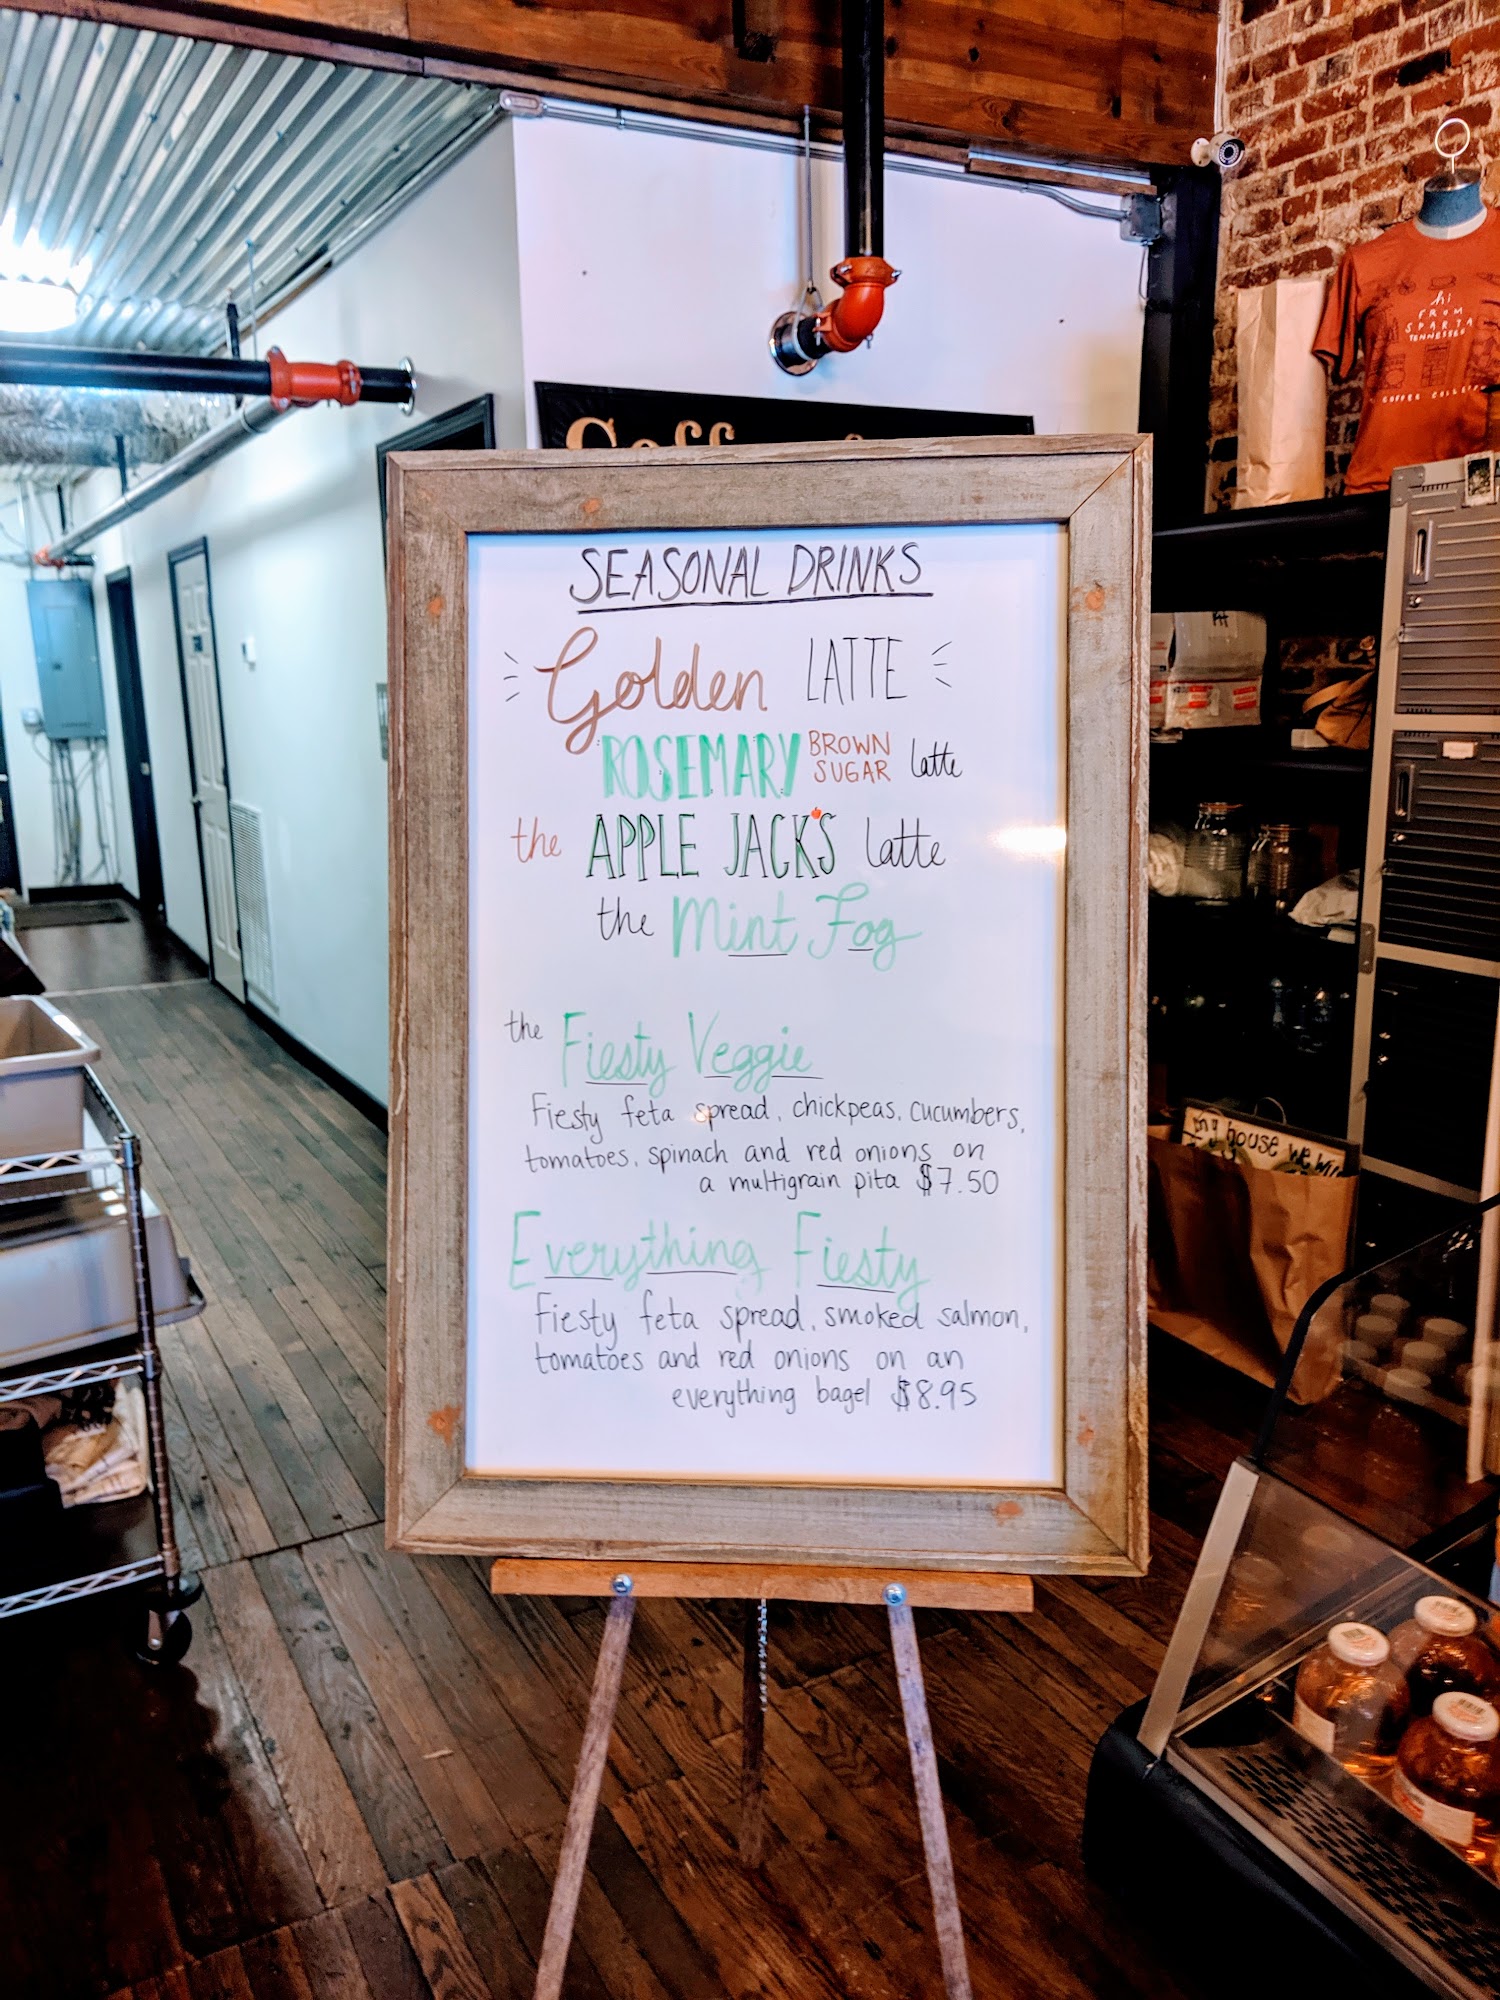 SEASONAL DRINKS
Golden LATTE
ROSEMARY BROWN SUGAR latte
the APPLE JACK'S latte
the Mint Fog
the Fiesty Veggie
Fiesty feta spread, chickpeas, cucumbers,
tomatoes, spinach and red onions on
a multigrain pita $7.50
Everything Fiesty
Fiesty feta spread, smoked salmon,
tomatoes and red onions on an
everything bagel $8.95
hi
FROM
SPARTA
TENNESSEE
COFFEE COLLE
my house we will